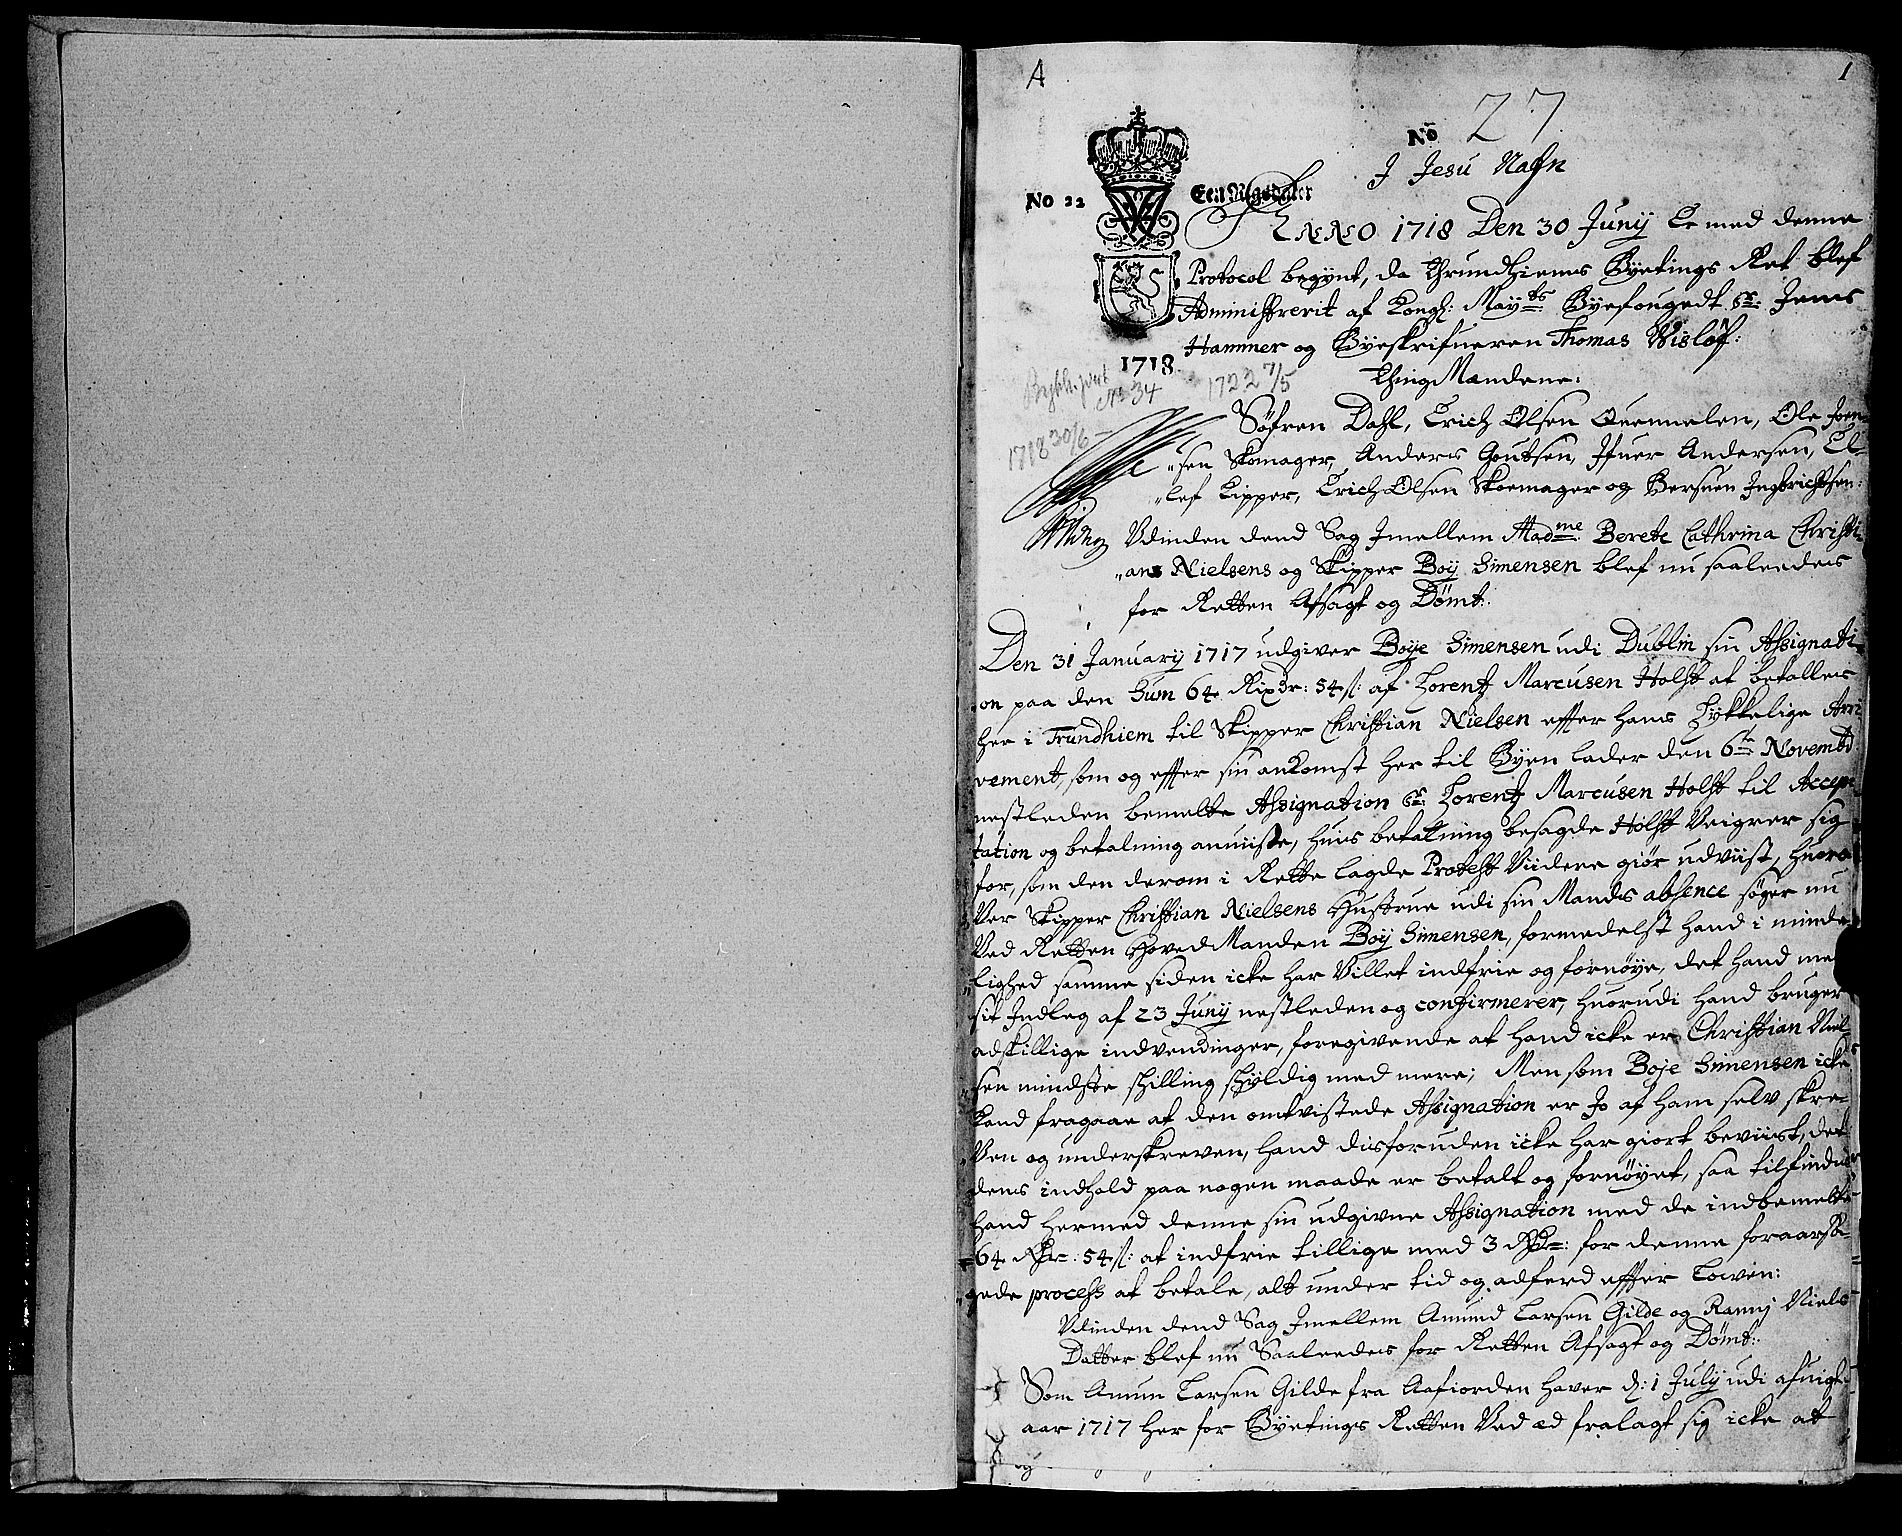 A
1
No 27
J Jesu Nafn
No 22
Een Rigsdaler
ANNO 1718 Den 30 Junij Er med denne
Protocol begynt, da Thrundhiems Byetings Ret blef
Administrerit af Kongl: Mayts Byefougedt Sr: Jens
Hammer og Byeskrifueren Thomas Wisløf:
1718
Thing Mændene:
1722 7/5
No 34
1718 30/6
Søfren Dahl, Erich Olsen Quennelen, Ole Joen-
"sen Skomager, Anders Goutsen, Ifuer Andersen, El-
"lef Tipper, Erich Olsen Skoemager og Bersuen Ingbrichtsen:
Udinden dend Sag Imellem Madme Berete Cathrina Christi-
"ans Nielsens og Skipper Boij Simensen blef nu saaleedes
for Retten Afsagt og Dømt:
Den 31 January 1717 udgiver Boye Simensen udi Dublin sin Assignati-
"on paa den Sum 64 Rixdr: 54 s: af Lorentz Marcusen Holst at betalles
her i Trundhiem til Skipper Christian Nielsen effter hans Lykkelige Arri
vement, som og effter sin ankomst her til Byen lader den 6te Novembr
nestleden bemelte Assignation Sr: Lorentz Marcusen Holst til Accep-
tation og betalning anuiise, huis betalning besagde Holst Veigrer sig
for, som den derom i Rette lagde Protest Viidere giør udviist, huoro-
Ver Skipper Christian Nielsens Hustrue udi sin Mands absence søger nu
Ved Retten HovedManden Boij Simensen, formedelst hand i minde-
"lighed samme siden icke har Villet indfrie og fornøye, det hand med
sit Indleg af 23 Junij nestleden og confirmerer, huorudi hand bruger
adskillige indvendinger, foregivende at hand icke er Christian Niel-
sen mindste skilling skyldig med mere; Men som Boje Simensen icke
Kand fragaae at den omtvistede Assignation er Jo af ham selv skre-
"Ven og underskreven, hand disforuden icke har giort beviist, det
dens indhold paa nogen maade er betalt og fornøyet, saa tilfindes
hand hermed denne sin udgivne Assignation med de indbemelte
64 Rdr: 54 s: at indfrie tillige med 3 Rdr: for denne foraarsa-
"gede process at betale, alt under tid og adferd effter Lowen:
Udinden dend Sag Imellem Amund Larsen Gilde og Ranni Niels-
Datter blef nu Saaleedes for Retten Afsagt og Dømt:
Som Amun Larsen Gilde fra Aafiorden haver d: 1 July udi afuigt
aar 1717 her for Byetings Retten Ved æd fralagt sig icke at